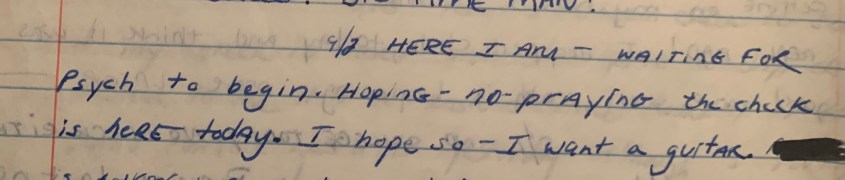 TIME MAN!
9/2 HERE I AM - WAITING FOR
Psych to begin. HopinG - no - prAying the check
is heRE today. I hope so - I want a guitAR.